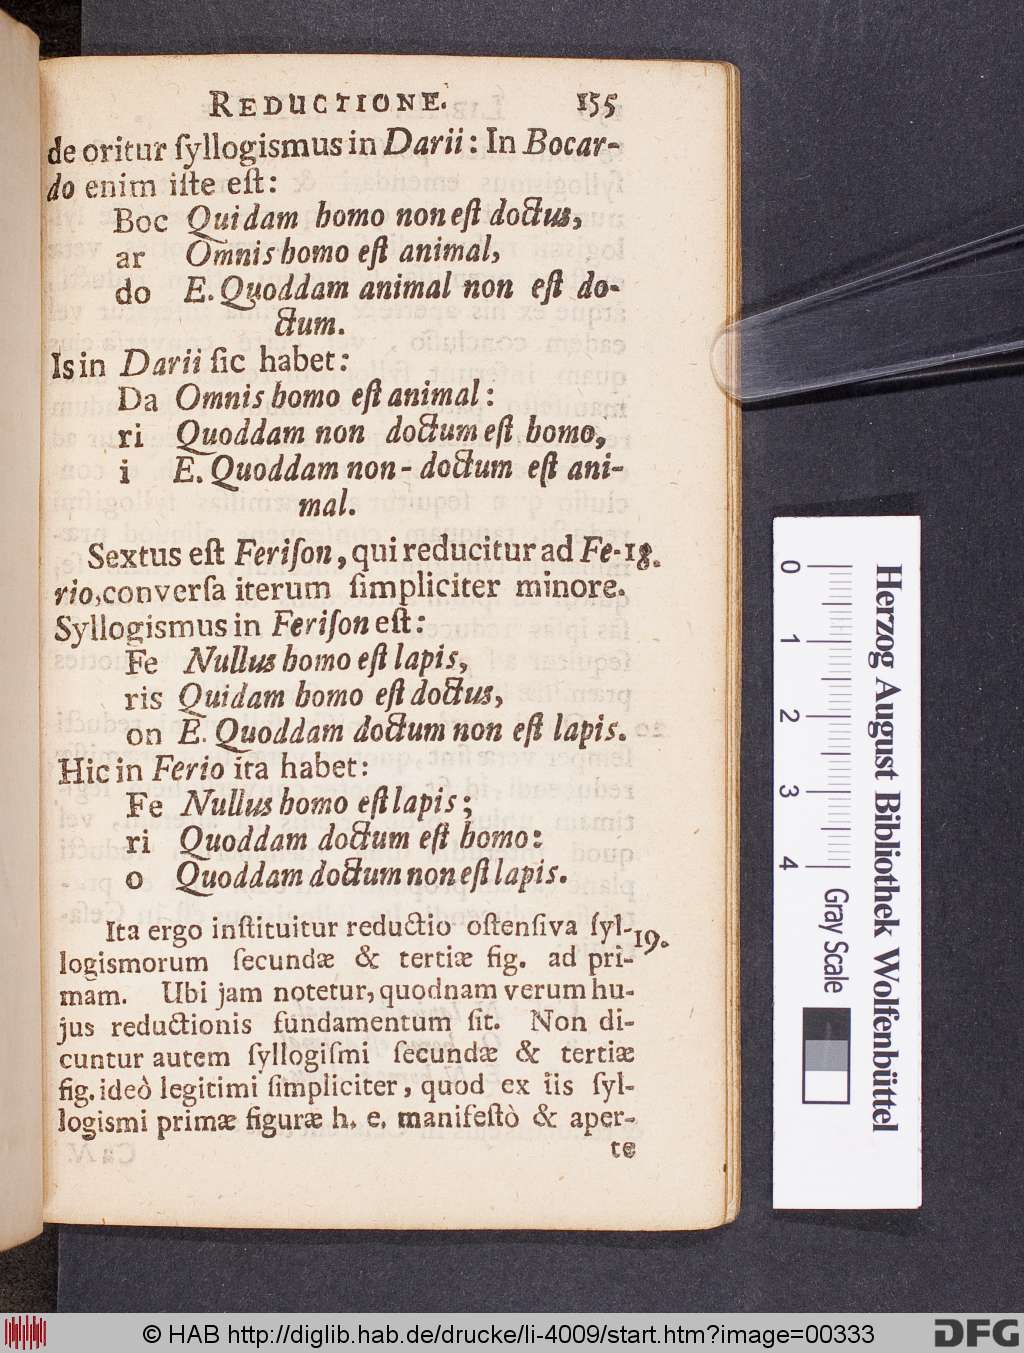 REDUCTIONE. 155
de oritur ſyllogismus in Darii: In Bocar-
do enim iſte eſt:
Boc Quidam homo non eſt doctus,
ar Omnis homo eſt animal,
do E. Quoddam animal non eſt do-
ctum.
Is in Darii ſic habet:
Da Omnis homo eſt animal:
ri Quoddam non doctum eſt homo,
i E. Quoddam non-doctum eſt ani-
mal.
Sextus eſt Feriſon, qui reducitur ad Fe- 18.
rio, converſa iterum ſimpliciter minore.
Syllogismus in Feriſon eſt:
Fe Nullus homo eſt lapis,
ris Quidam homo eſt doctus,
on E. Quoddam doctum non eſt lapis.
Hic in Ferio ita habet:
Fe Nullus homo eſt lapis;
ri Quoddam doctum eſt homo:
o Quoddam doctum non eſt lapis.
Ita ergo inſtituitur reductio oſtenſiva ſyl- 19.
logismorum ſecundæ & tertiæ fig. ad pri-
mam. Ubi jam notetur, quodnam verum hu-
jus reductionis fundamentum ſit. Non di-
cuntur autem ſyllogiſmi ſecundæ & tertiæ
fig. ideò legitimi ſimpliciter, quod ex iis ſyl-
logismi primæ figuræ h. e. manifeſtò & aper-
te
0 1 2 3 4
Gray Scale
Herzog August Bibliothek Wolfenbüttel
© HAB http://diglib.hab.de/drucke/li-4009/start.htm?image=00333
DFG